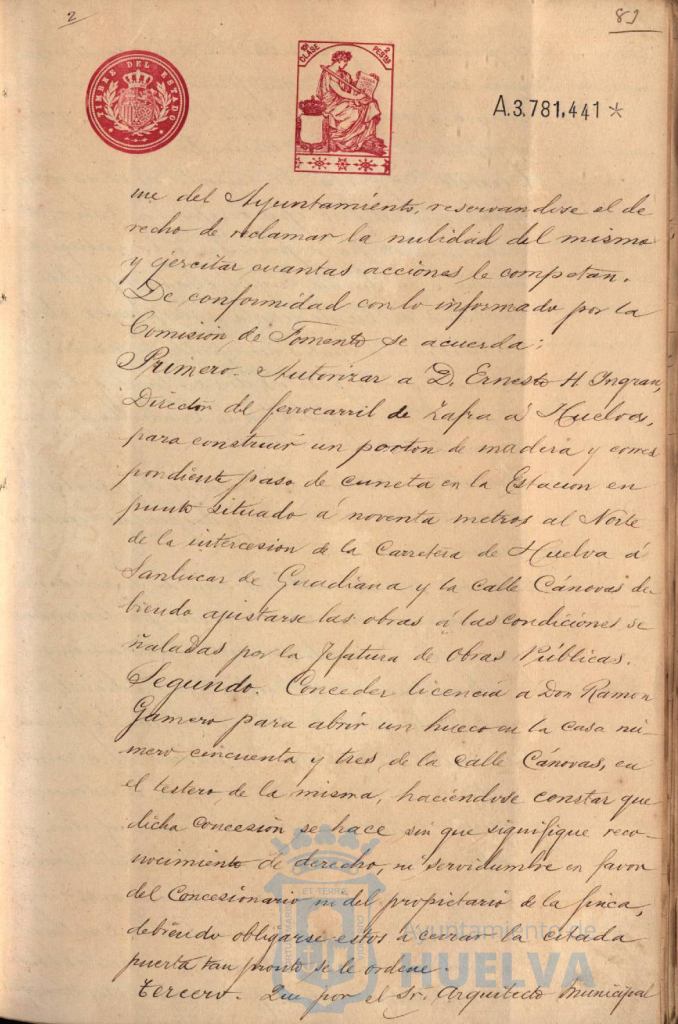 2
89
TIMBRE DEL ESTADO
10ª CLASE
2 PESTAS
A.3.781,441 *
me del Ayuntamiento, reservandose el de
recho de reclamar la nulidad del mismo
y ejercitar cuantas acciones le competan.
De conformidad con lo informado por la
Comisión de Fomento se acuerda:
Primero. Autorizar a D. Ernesto H Ingran,
Director del ferrocarril de Zafra á Huelva,
para construir un porton de madera y corres
pondiente paso de cuneta en la Estacion en
punto situado á noventa metros al Norte
de la intercesion de la Carretera de Huelva á
Sanlucar de Guadiana y la calle Cánovas de
biendo ajustarse las obras á las condiciones se
ñaladas por la Jefatura de Obras Públicas.
Segundo. Conceder licencia a Don Ramon
Gamero para abrir un hueco en la casa nú-
mero cincuenta y tres de la calle Cánovas, en
el testero de la misma, haciéndose constar que
dicha concesión se hace sin que signifique reco-
nocimiento de derecho, ni servidumbre en favor
del Concesionario ni del propietario de la finca,
debiendo obligarse estos a cerrar la citada
puerta tan pronto se le ordene.
Tercero. Que por el Sr. Arquitecto Municipal
Ayuntamiento de
HUELVA